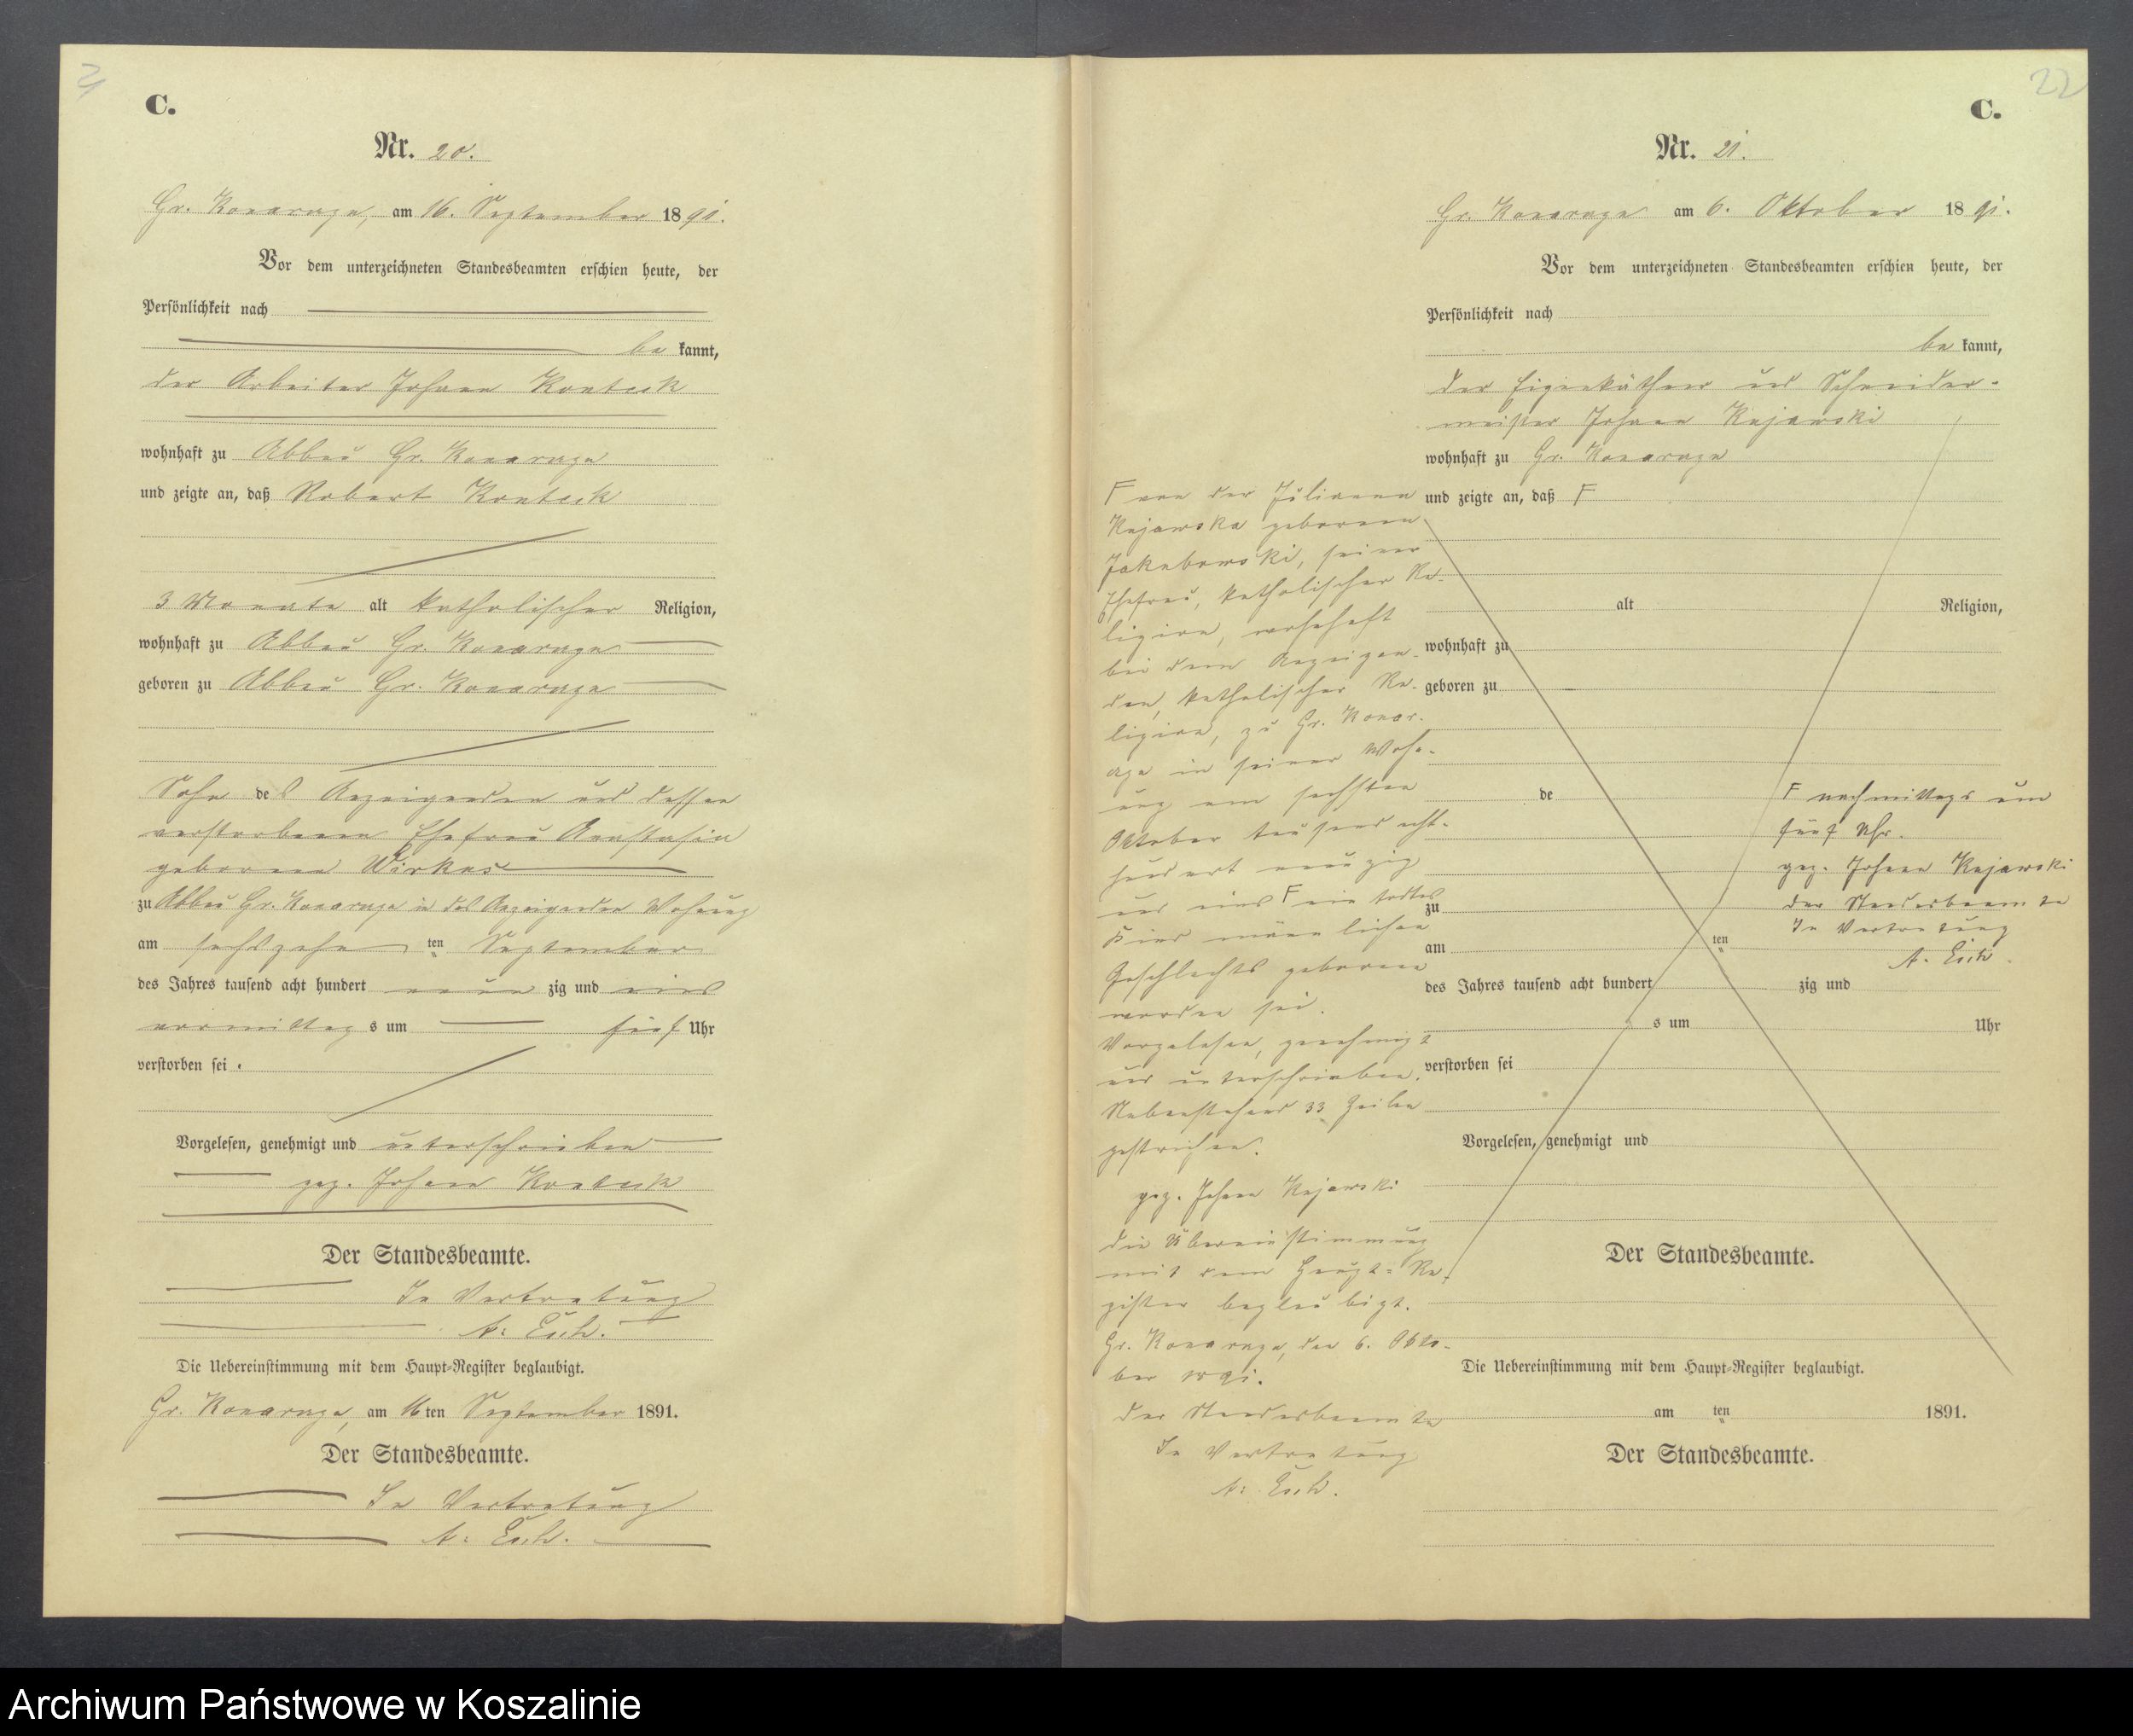 21
C.
Nr. 20.
Gr. Konarzyn, am 16. September 1891.
Vor dem unterzeichneten Standesbeamten erschien heute, der
Persönlichkeit nach
be kannt,
der Arbeiter Johann
wohnhaft zu Abbau Gr. Konarzyn
und zeigte an, daß Robert
3 Monate alt katholischer Religion,
wohnhaft zu Abbau Gr. Konarzyn
geboren zu Abbau Gr. Konarzyn
Sohn des Anzeigenden und dessen
verstorbenen Ehefrau Anastasia
geborenen Wirkus
zu Abbau Gr. Konarzyn in des Anzeigenden Wohnung
am sechszehnten September
des Jahres tausend acht hundert neunzig und eins
vormittags um fünf Uhr
verstorben sei.
Vorgelesen, genehmigt und unterschrieben
gez. Johann
Der Standesbeamte.
In Vertretung
A.
Die Uebereinstimmung mit dem Haupt-Register beglaubigt.
Gr. Konarzyn, am 16ten September 1891.
Der Standesbeamte.
In Vertretung
A.
22
C.
Nr. 21.
Gr. Konarzyn am 6. Oktober 1891.
Vor dem unterzeichneten Standesbeamten erschien heute, der
Persönlichkeit nach
be kannt,
der Eigenkäthner und Schneider-
meister Johann Kujawski
wohnhaft zu Gr. Konarzyn
und zeigte an, daß F
alt Religion,
wohnhaft zu
geboren zu
de
zu
am ten
des Jahres tausend acht hundert zig und
s um Uhr
verstorben sei
Vorgelesen, genehmigt und
Der Standesbeamte.
Die Uebereinstimmung mit dem Haupt-Register beglaubigt.
am ten 1891.
Der Standesbeamte.
F von der Julianna
Kujawska geborenen
Jakubowski, seiner
Ehefrau, katholischer Re-
ligion, wohnhaft
bei dem Anzeigen-
den, katholischer Re-
ligion, zu Gr. Konar-
zyn in seiner Wohn-
ung am sechsten
Oktober tausend acht-
hundert neunzig
und eins F ein todtes
Kind männlichen
Geschlechts geboren
worden sei.
Vorgelesen, genehmigt
und unterschrieben.
Nebenstehend 33 Zeilen
gestrichen.
gez. Johann Kujawski
Die Übereinstimmung
mit dem Haupt-Re-
gister beglaubigt.
Gr. Konarzyn, den 6. Okto-
ber 1891.
Der Standesbeamte
In Vertretung
A.
F nachmittags um
fünf Uhr.
gez. Johann Kujawski
Der Standesbeamte
In Vertretung
A.
Archiwum Państwowe w Koszalinie